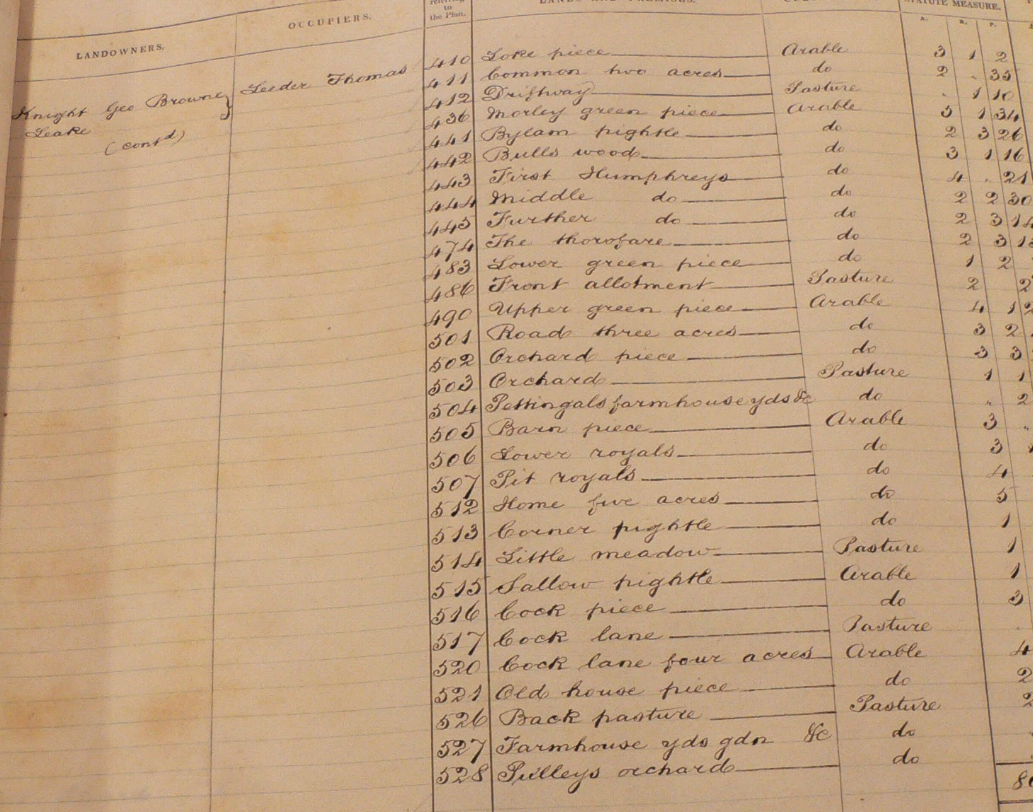 LANDOWNERS. OCCUPIERS. referring to the Plan. LANDS AND PREMISES. STATUTE MEASURE.
A. R. P.
Knight Geo Browne Leake (contd) Leeder Thomas
410 Loke piece Arable 3 1 2
411 Common two acres do 2 . 35
412 Driftway Pasture . 1 10
436 Morley green piece Arable 3 1 34
441 Bylam pightle do 2 3 26
442 Bulls wood do 3 1 16
443 First Humphreys do 4 . 21
444 Middle do do 2 2 30
445 Further do do 2 3 14
474 The thorofare do 2 3
483 Lower green piece do 1 2
486 Front allotment Pasture 2
490 Upper green piece Arable 4 1
501 Road three acres do 3 2
502 Orchard piece do 3 3
503 Orchard Pasture 1 1
504 Pettingals farmhouse yds &c do „ 2
505 Barn piece Arable 3 „
506 Lower royals do 3
507 Pit royals do 4
512 Home five acres do 5
513 Corner pightle do 1
514 Little meadow Pasture 1
515 Sallow pightle Arable 1
516 Cock piece do 3
517 Cock lane Pasture .
520 Cock lane four acres Arable 4
521 Old house piece do 2
526 Back pasture Pasture 2
527 Farmhouse yds gdn &c do
528 Pulleys orchard do
8